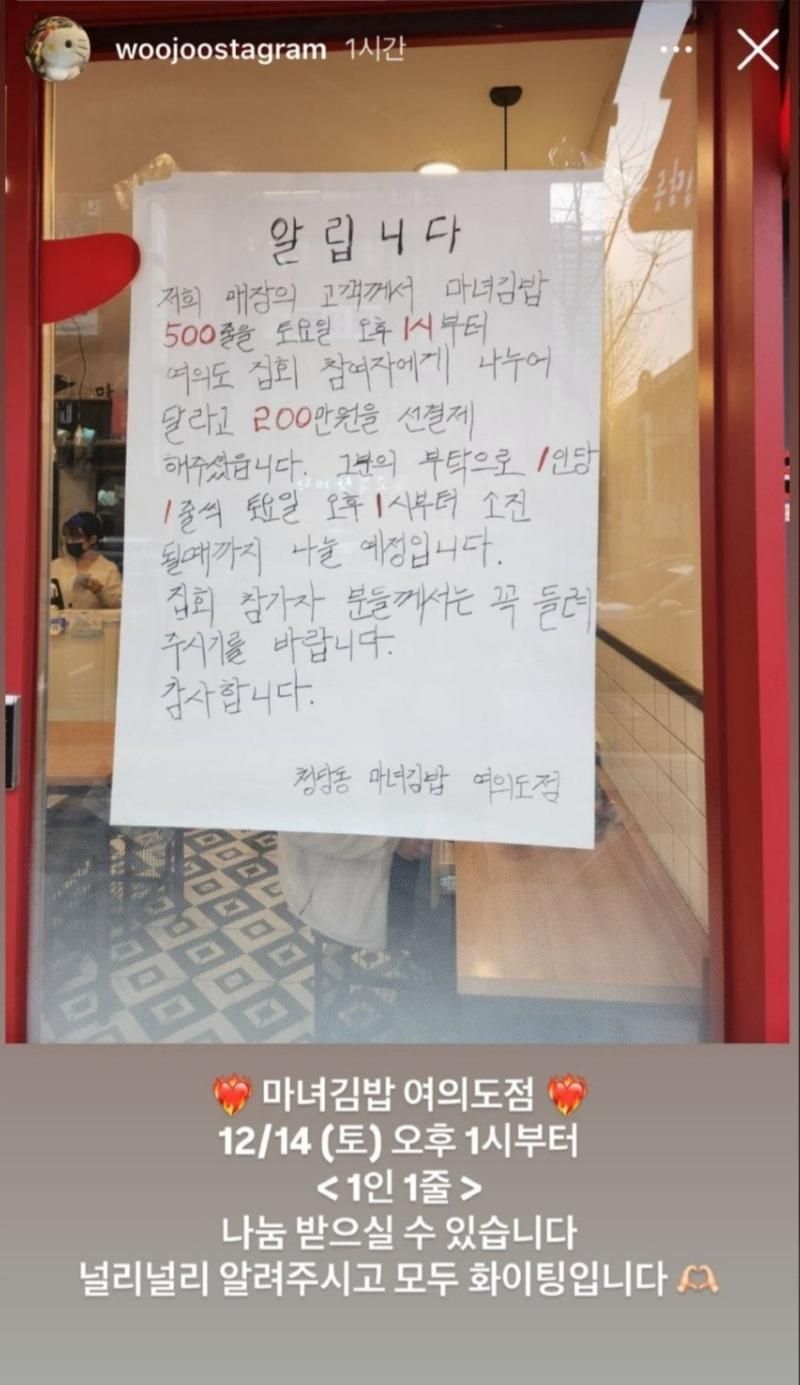 woojoostagram 1시간
알립니다
저희 매장의 고객께서 마녀김밥
500줄을 토요일 오후 1시부터
여의도 집회 참여자에게 나누어
달라고 200만원을 선결제
해주셨읍니다. 그분의 부탁으로 1인당
1줄씩 토요일 오후 1시부터 소진
될때까지 나눌 예정입니다.
집회 참가자 분들께서는 꼭 들려
주시기를 바랍니다.
감사합니다.
청담동 마녀김밥 여의도점
❤️‍🔥 마녀김밥 여의도점 ❤️‍🔥
12/14 (토) 오후 1시부터
< 1인 1줄 >
나눔 받으실 수 있습니다
널리널리 알려주시고 모두 화이팅입니다 🫶🏻